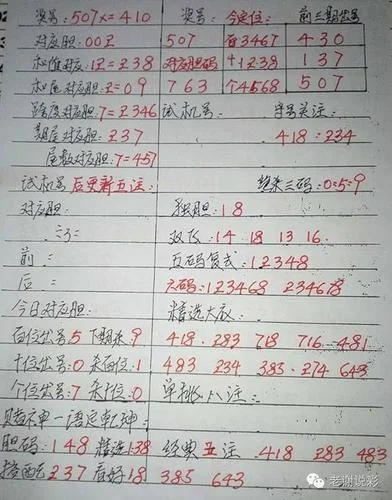 奖号:507x=410 奖号: 今定位: 前三期出号
对应胆:00五 507 百3467 430
和值对应:1五=238 对应胆码 十1238 137
和尾对应五=09 763 个4568 507
跨度对应胆.7=2346 试机号: 字号关注:
期尾对应胆:237 418:234
尾数对应胆:7=457
试机号后更新五注: 绝杀三码:0:5:9
对应胆: 独胆:18
双飞:14 18 13 16
前: 五码复式:12348
后: 六码:123468 234678
今日对应胆: 精选大底:
百位出号:5 下期杀9 418.283 718 716 481
十位出号:0 杀百位:1 483 234 383.274 643
个位出号:7 杀十位:0 单挑八注:
一语定乾坤:
胆码:148 精选138 经典五注.418 283 483
237看好18 385 643
老谢说彩